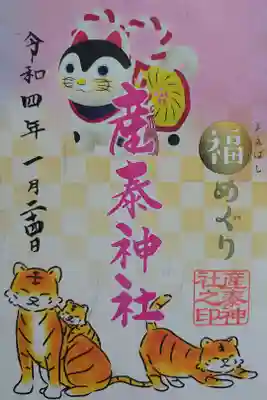 まえばし
福めぐり
産泰神社
令和四年 一月二十四日
産泰神
社之印